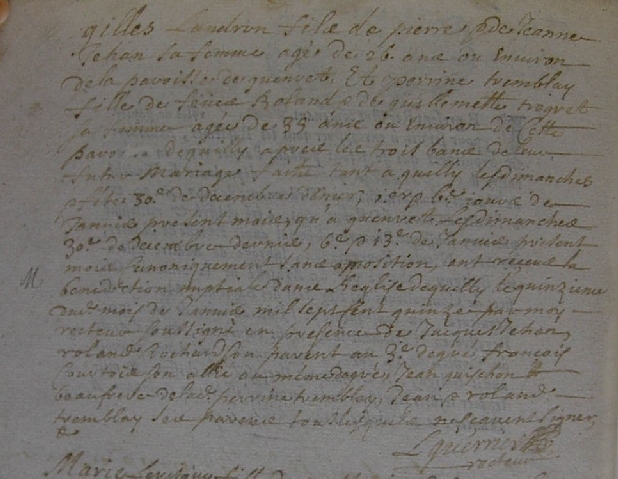 gilles Landron fils de pierre & de Jeanne
Jehan sa femme agé de 26 ans ou Environ
de la paroisse de guenvet, Et perrine tremblay
fille de feus Roland & de guillemette
sa femme agée de 35 ans ou Environ de Cette
paroisse dequilly apres les trois bans de leur
futur Mariage faits tant a quilly les dimanches
& fêtes 30.e de decembre dernier, 1er & 6.e jours de
Janvier présent mois, qu a guenvet les dimanches
30.e de decembre dernier, 6.e & 13.e de Janvier présent
mois Canoniquement sans oposition, ont receus la
M benediction nuptiale dans l'eglise dequilly le quinzieme
mois de Janvier mil sept sent quinze par moy
recteur soussigné en présence de Jacques Jehan,
roland Rochard son parent au 3.e degré, francois
Courtois son allié au même dagré, Jean
beaufrere de lad. perrine tremblay, Jean & roland
tremblay ses parens tous lesquels ne scavent signer,
&
recteur
Marie fille